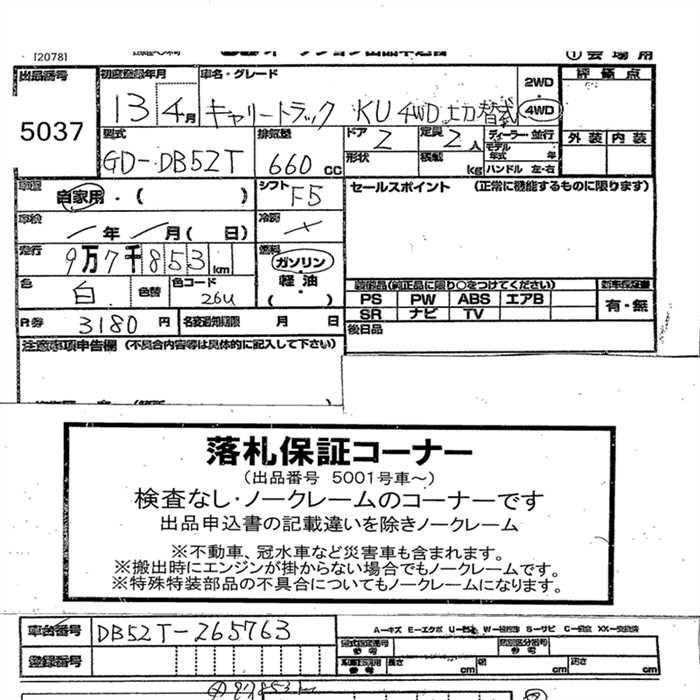 [2078]
①会場用
出品番号 5037
初度登録年月 13 4月
車名・グレード キャリートラック KU 4WD 切替式
2WD・4WD
評価点
型式 GD-DB52T
排気量 660 cc
ドア 2
定員 2人
ディーラー・並行
モデル年式 年
外装 内装
形状
積載 kg
ハンドル 左・右
車歴 自家用・( )
シフト F5
セールスポイント (正常に機能するものに限ります)
車検 / 年 / 月( 日)
冷房 ×
走行 9万7千853km
燃料 ガソリン・軽油 ( )
色 白
色替
色コード 26U
装備品(純正品に限り○をつけてください)
新車保証書 有・無
PS PW ABS エアB
SR ナビ TV
R券 3180 円
名変通知期限 月 日
後日品
注意事項申告欄 (不具合内容等は具体的に記入して下さい)
落札保証コーナー
(出品番号 5001号車～)
検査なし・ノークレームのコーナーです
出品申込書の記載違いを除きノークレーム
※不動車、冠水車など災害車も含まれます。
※搬出時にエンジンが掛からない場合でもノークレームです。
※特殊特装部品の不具合についてもノークレームになります。
車台番号 DB52T-265763
A—キズ E—エクボ
S—サビ
登録番号
長さ cm 幅 cm 高さ cm